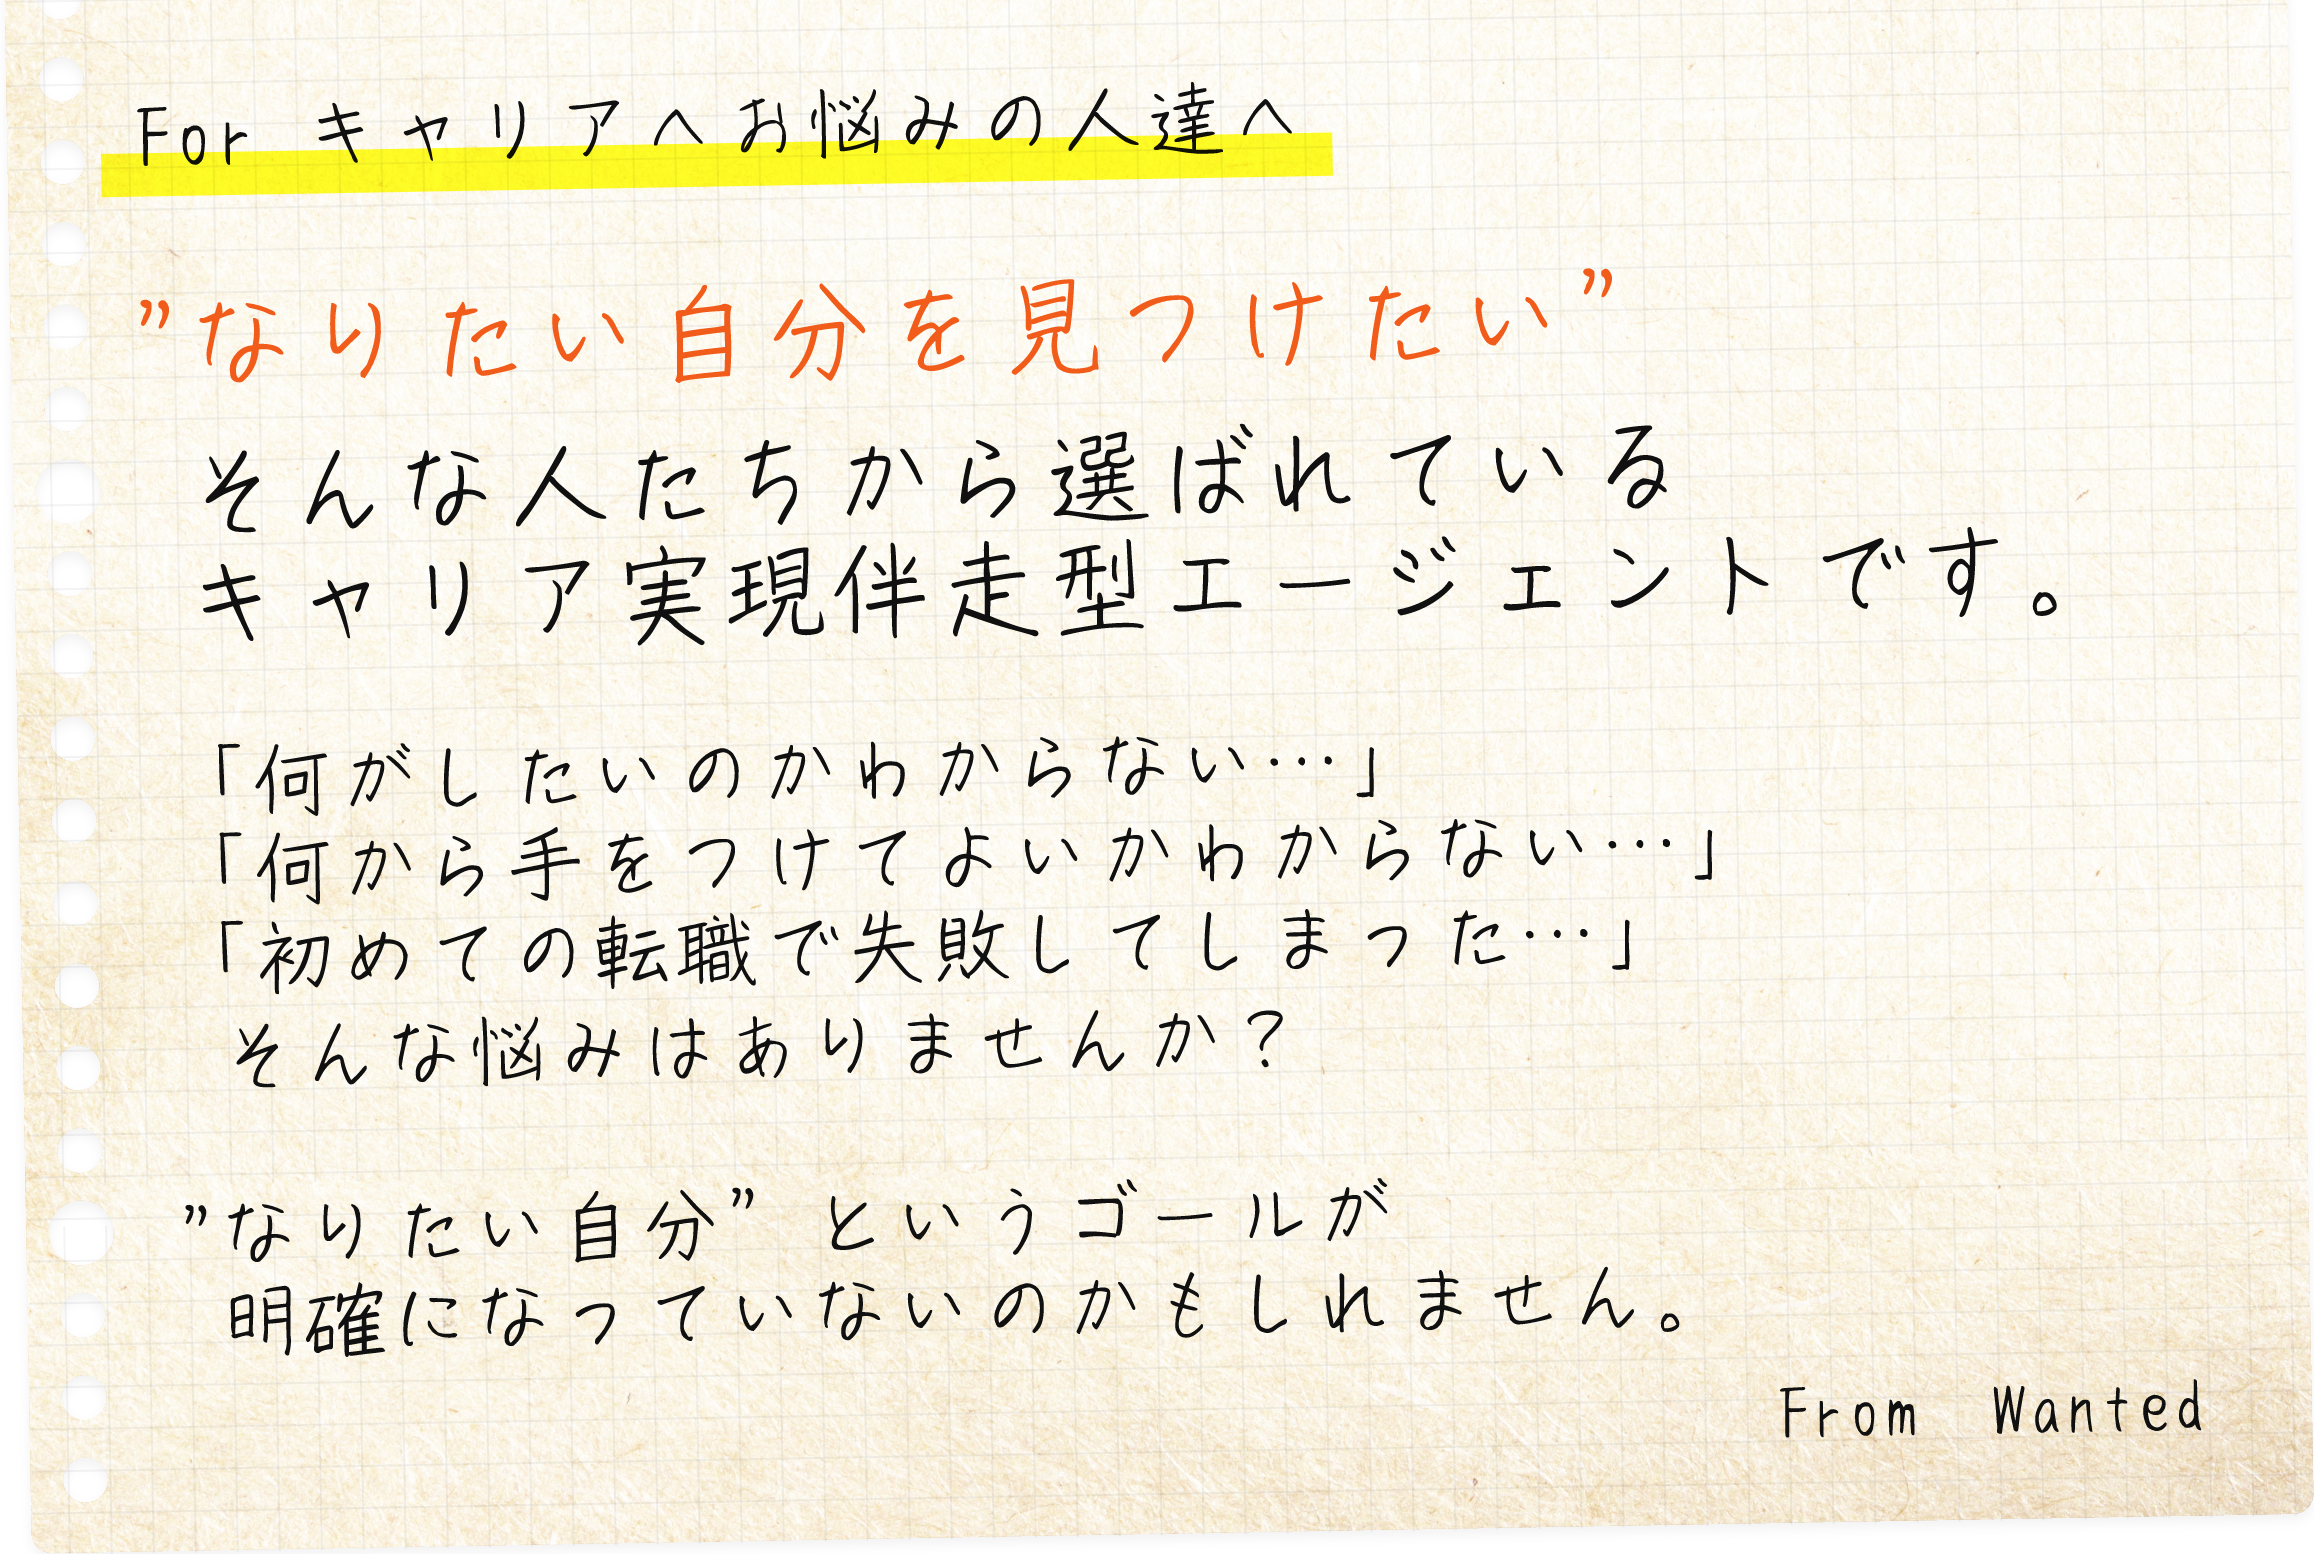 For キャリアへお悩みの人達へ
”なりたい自分を見つけたい”
そんな人たちから選ばれている
キャリア実現伴走型エージェントです。
「何がしたいのかわからない…」
「何から手をつけてよいかわからない…」
「初めての転職で失敗してしまった…」
そんな悩みはありませんか？
”なりたい自分” というゴールが
明確になっていないのかもしれません。
From Wanted